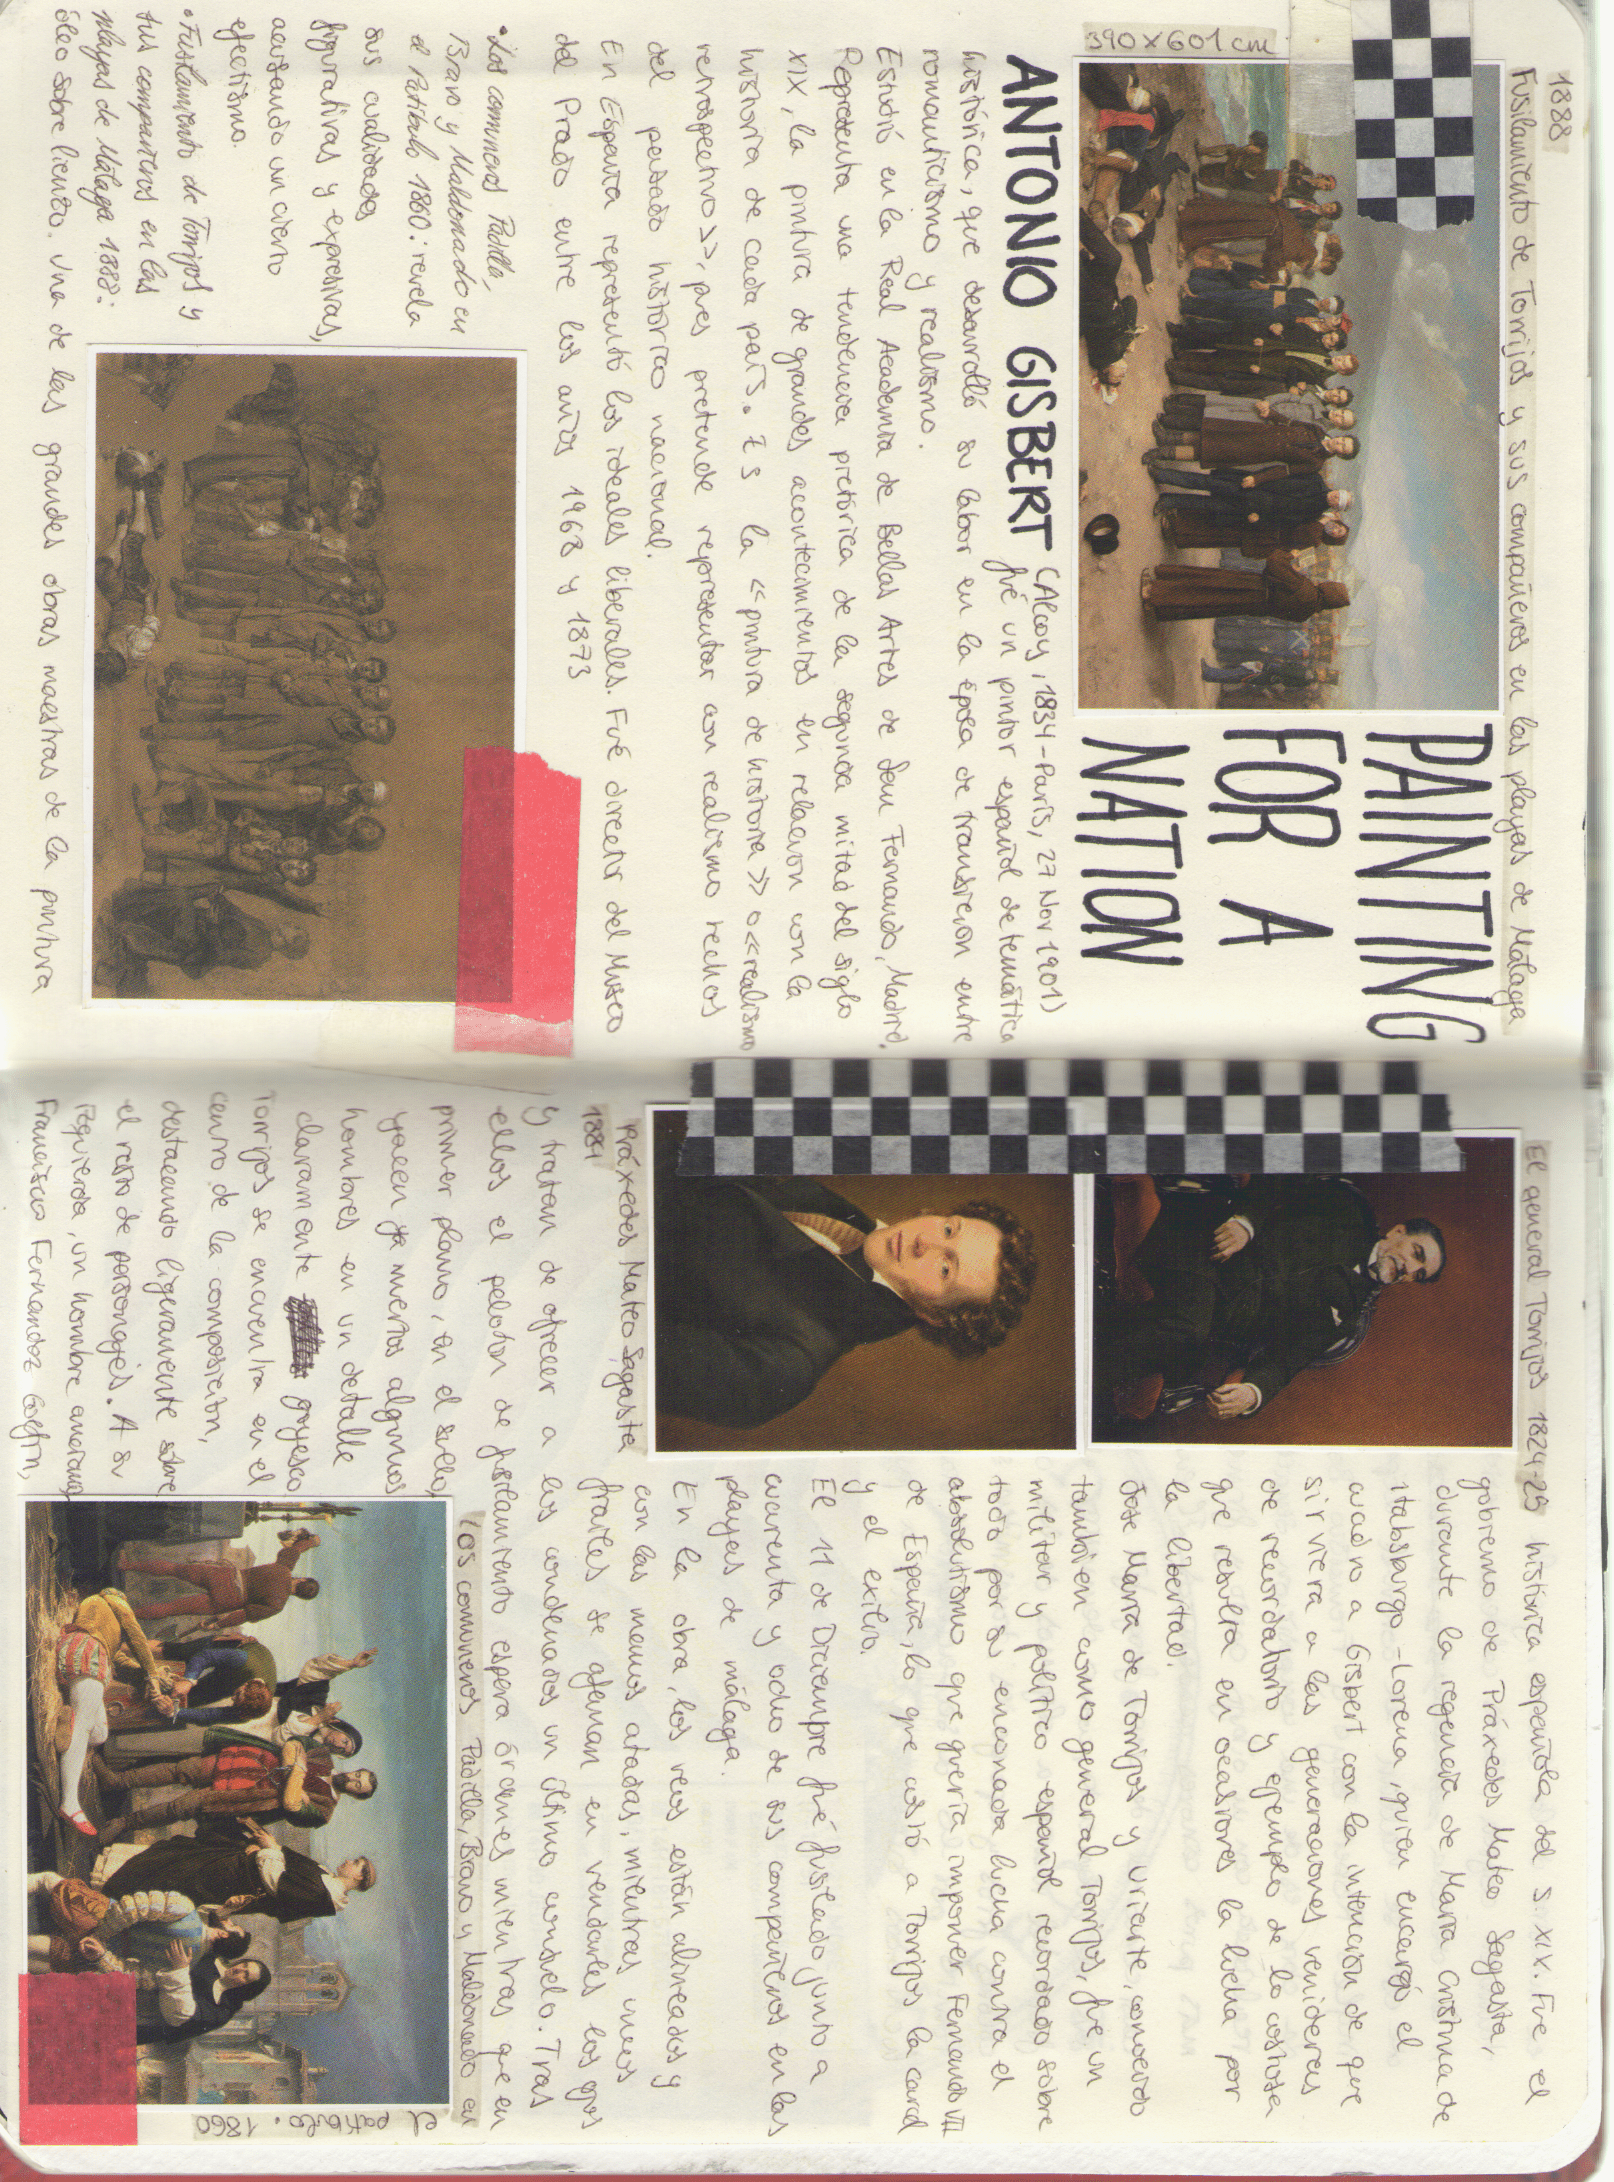 1888
Fusilamiento de Torrijos y sus compañeros en las playas de Malaga
390 x 601 cm
PAINTING
FOR A
NATION
ANTONIO GISBERT (Alcoy, 1834-París, 27 Nov 1901)
fué un pintor español de temática
histórica, que desarrolló su labor en la época de transicion entre
romanticismo y realismo.
Estudió en la Real Academia de Bellas Artes de San Fernando, Madrid.
Representa una tendencia pictórica de la segunda mitad del siglo
XIX, la pintura de grandes acontecimientos en relacion con la
historia de cada país. Es la <<pintura de historia>> o <<realismo
retrospectivo>>, pues pretende representar con realismo hechos
del pasado histórico nacional.
En España representó los ideales liberales. Fué director del Museo
del Prado entre los años 1968 y 1873
• Los comuneros Padilla,
Bravo y Maldonado en
el Patíbulo 1860: revela
sus cualidades
figurativas y expresivas,
acusando un cierto
efectismo.
• Fusilamiento de Torrijos y
sus compañeros en las
playas de Málaga 1888:
óleo sobre lienzo. Una de las grandes obras maestras de la pintura
El general Torrijos 1824-25
histórica española del s. XIX. Fue el
gobierno de Práxedes Mateo Sagasta,
durante la regencia de María Cristina de
Habsburgo-Lorena, quien encargó el
cuadro a Gisbert con la intención de que
sirviera a las generaciones venideras
de recordatorio y ejemplo de lo costosa
que resulta en ocasiones la lucha por
la libertad.
Jose María de Torrijos y Uriarte, conocido
tambien como general Torrijos, fue un
militar y político español recordado sobre
todo por su enconada lucha contra el
absolutismo que quería imponer Fernando VII
de España, lo que costó a Torrijos la carcel
y el exilio.
El 11 de Diciembre fué fusilado junto a
cuarenta y ocho de sus compañeros en las
playas de málaga.
En la obra, los reos están alineados y
con las manos atadas, mientras unos
frailes se afanan en vendarles los ojos
Práxedes Mateo Sagasta
1884
y tratan de ofrecer a los condenados un último consuelo. Tras
ellos el peloton de fusilamiento espera órdenes mientras que en
primer plano, en el suelo,
yacen ya muertos algunos
hombres en un detalle
claramente goyesco
Torrijos se encuentra en el
centro de la composicion,
destacando ligeramente sobre
el resto de personajes. A su
izquierda, un hombre anciano,
Francisco Fernandez Golfin,
Los comuneros Padilla, Bravo y Maldonado en
el patíbulo. 1860